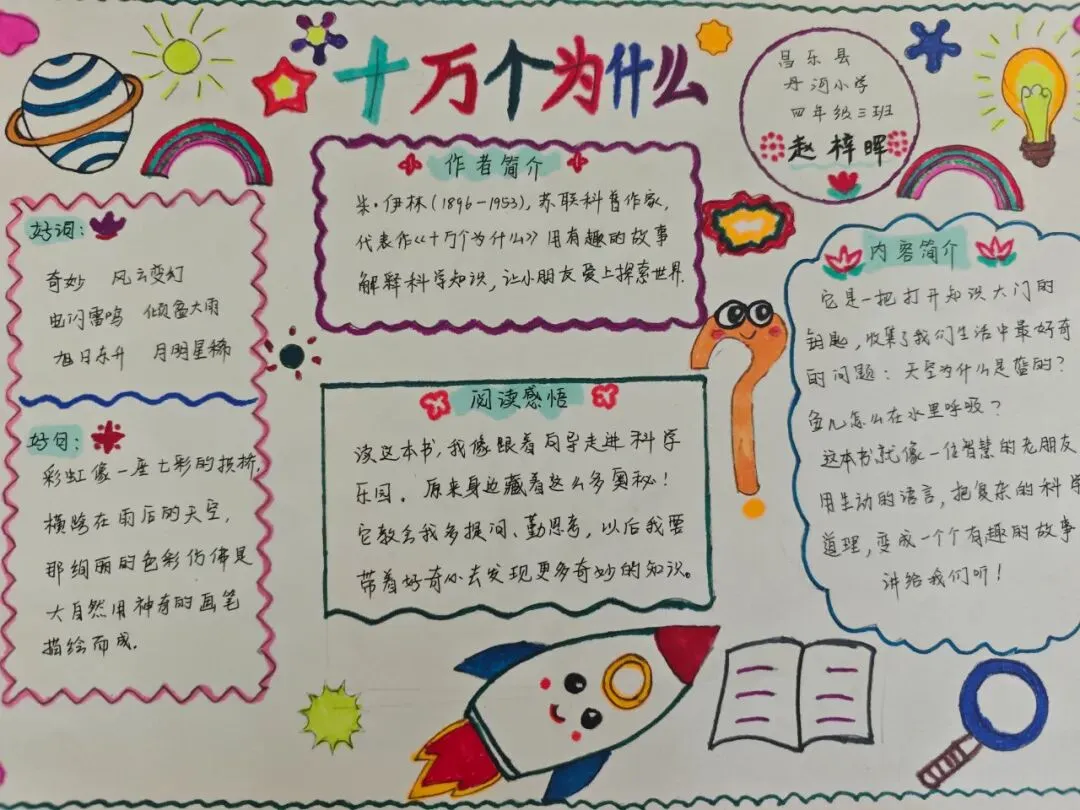 十万个为什么
昌乐县
丹河小学
四年级三班
赵梓晖
好词:
奇妙 风云变幻
电闪雷鸣 倾盆大雨
旭日东升 月明星稀
好句:
彩虹像一座七彩的拱桥,
横跨在雨后的天空,
那绚丽的色彩仿佛是
大自然用神奇的画笔
描绘而成.
作者简介
米·伊林(1896-1953),苏联科普作家,
代表作《十万个为什么》用有趣的故事
解释科学知识,让小朋友爱上探索世界.
阅读感悟
读这本书,我像跟着向导走进科学
乐园。原来身边藏着这么多奥秘!
它教会我多提问、勤思考,以后我要
带着好奇心去发现更多奇妙的知识。
内容简介
它是一把打开知识大门的
钥匙,收集了我们生活中最好奇
的问题:天空为什么是蓝的?
鱼儿怎么在水里呼吸?
这本书就像一位智慧的老朋友
用生动的语言,把复杂的科学
道理,变成一个个有趣的故事
讲给我们听!